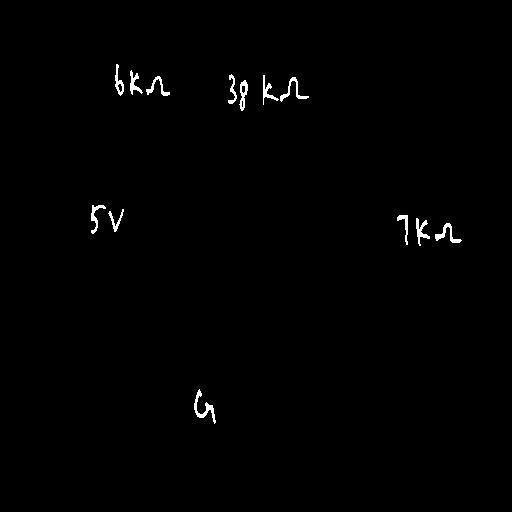 6KΩ 38KΩ
5V 7KΩ
G